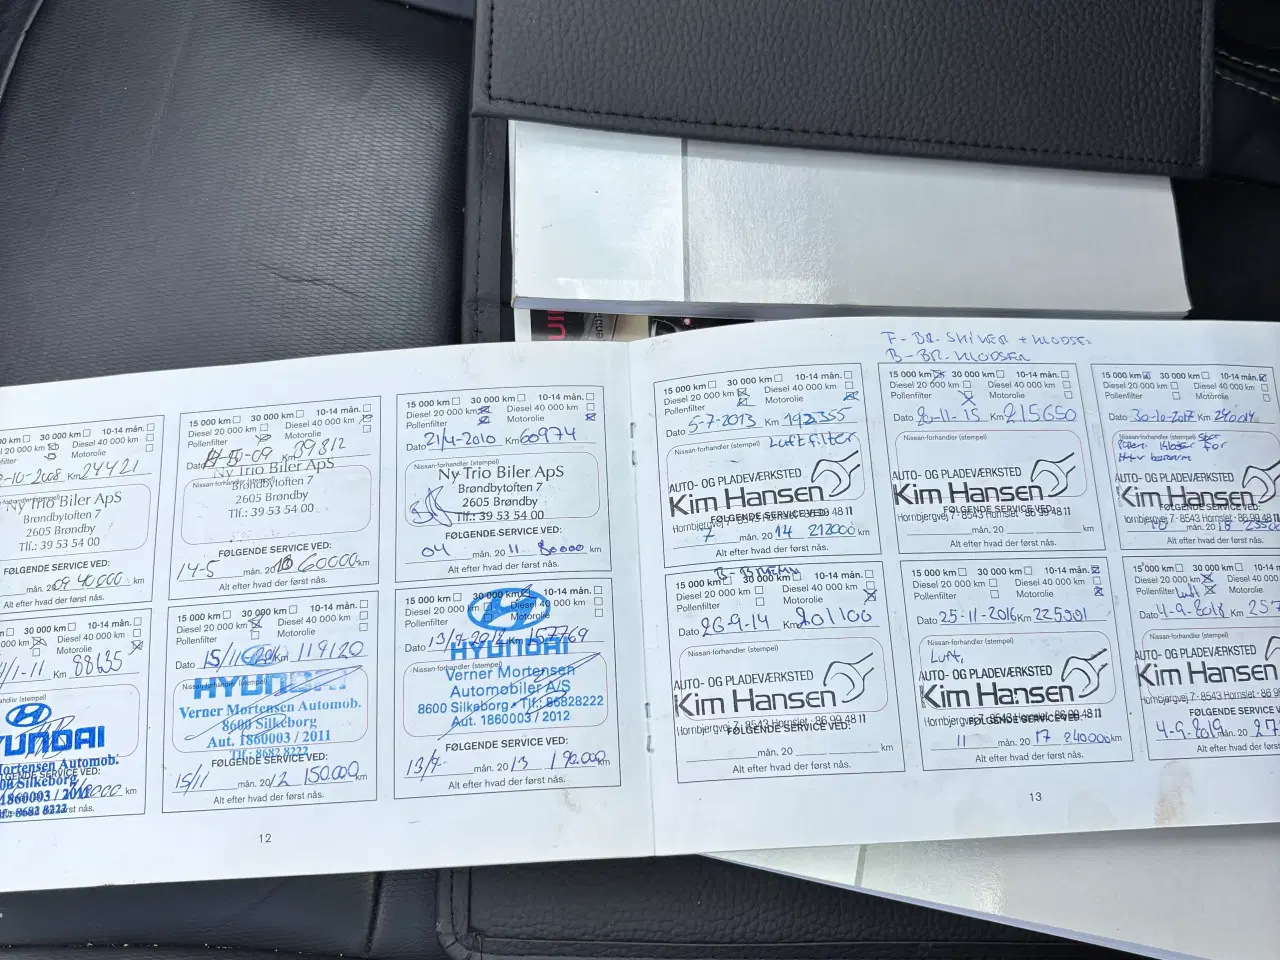 15 000 km 30 000 km 10-14 mån.
Diesel 20 000 km Diesel 40 000 km
-10-2008 Km 24421
Ny Trio Biler ApS
Brøndbytoften 7
2605 Brøndby
Tlf.: 39 53 54 00
FØLGENDE SERVICE VED:
mån. 20 09 40000 km
Alt efter hvad der først nås.
15 000 km 30 000 km 10-14 mån.
Diesel 20 000 km Diesel 40 000 km
Pollenfilter Motorolie
Dato 14-5-09 Km 39812
Nissan-forhandler (stempel)
Ny Trio Biler ApS
Brøndbytoften 7
2605 Brøndby
Tlf.: 39 53 54 00
FØLGENDE SERVICE VED:
14-5 mån. 20 10 60000 km
Alt efter hvad der først nås.
15 000 km 30 000 km 10-14 mån.
Diesel 20 000 km Diesel 40 000 km
Pollenfilter Motorolie
Dato 21/4-2010 Km 60974
Nissan-forhandler (stempel)
Ny Trio Biler ApS
Brøndbytoften 7
2605 Brøndby
Tlf.: 39 53 54 00
FØLGENDE SERVICE VED:
04 mån. 20 11 80000 km
Alt efter hvad der først nås.
30 000 km 10-14 mån.
Diesel 40 000 km
Motorolie
/1-11 Km 88635
HYUNDAI
Mortensen Automob.
8600 Silkeborg
1860003 / 2011
Tlf.: 8682 8222
km
Alt efter hvad der først nås.
15 000 km 30 000 km 10-14 mån.
Diesel 20 000 km Diesel 40 000 km
Pollenfilter Motorolie
Dato 15/11-2011 Km 119120
Nissan-forhandler (stempel)
HYUNDAI
Verner Mortensen Automob.
8600 Silkeborg
Aut. 1860003 / 2011
Tlf.: 8682 8222
FØLGENDE SERVICE VED:
15/11 mån. 20 12 150.000 km
Alt efter hvad der først nås.
15 000 km 30 000 km 10-14 mån.
Diesel 20 000 km Diesel 40 000 km
Pollenfilter Motorolie
Dato 13/9-2012 Km 157769
Nissan-forhandler (stempel)
HYUNDAI
Verner Mortensen
Automobiler A/S
8600 Silkeborg - Tlf.: 86828222
Aut. 1860003 / 2012
FØLGENDE SERVICE VED:
13/9- mån. 20 13 190.000 km
Alt efter hvad der først nås.
12
F-BR-SKIVER + KLODSER
B-BR-KLODSER
15 000 km 30 000 km 10-14 mån.
Diesel 20 000 km Diesel 40 000 km
Pollenfilter Motorolie
Dato 5-7-2013 Km 192355
Nissan-forhandler (stempel) Luftfilter
AUTO- OG PLADEVÆRKSTED
Kim Hansen
Hornbjergvej 7 - 8543 Hornslet - 86 99 48 11
FØLGENDE SERVICE VED:
7 mån. 20 14 212000 km
Alt efter hvad der først nås.
15 000 km 30 000 km 10-14 mån.
Diesel 20 000 km Diesel 40 000 km
Pollenfilter Motorolie
Dato 20-11-15 Km 215650
Nissan-forhandler (stempel)
AUTO- OG PLADEVÆRKSTED
Kim Hansen
Hornbjergvej 7 - 8543 Hornslet - 86 99 48 11
FØLGENDE SERVICE VED:
mån. 20 km
Alt efter hvad der først nås.
15 000 km 30 000 km 10-14 mån.
Diesel 20 000 km Diesel 40 000 km
Pollenfilter Motorolie
Dato 30-10-2017 Km
Nissan-forhandler (stempel)
AUTO- OG PLADEVÆRKSTED
Kim Hansen
Hornbjergvej 7 - 8543 Hornslet - 86 99 48 11
FØLGENDE SERVICE VED:
10 mån. 20 18
Alt efter hvad der først nås.
15 000 km 30 000 km 10-14 mån.
Diesel 20 000 km Diesel 40 000 km
Pollenfilter Motorolie
Dato 26-9-14 Km 201100
Nissan-forhandler (stempel)
AUTO- OG PLADEVÆRKSTED
Kim Hansen
Hornbjergvej 7 - 8543 Hornslet - 86 99 48 11
FØLGENDE SERVICE VED:
mån. 20 km
Alt efter hvad der først nås.
15 000 km 30 000 km 10-14 mån.
Diesel 20 000 km Diesel 40 000 km
Pollenfilter Motorolie
Dato 25-11-2016 Km 225901
Nissan-forhandler (stempel)
Luft,
AUTO- OG PLADEVÆRKSTED
Kim Hansen
Hornbjergvej 7 - 8543 Hornslet - 86 99 48 11
FØLGENDE SERVICE VED:
11 mån. 20 17 240000 km
Alt efter hvad der først nås.
15 000 km 30 000 km 10-14 mån.
Diesel 20 000 km Diesel 40 000
Pollenfilter Luft Motorolie
Dato 4-9-2018 Km 257
Nissan-forhandler (stempel)
AUTO- OG PLADEVÆRKSTED
Kim Hansen
Hornbjergvej 7 - 8543 Hornslet - 86 99
FØLGENDE SERVICE VED:
4-9-2019 mån. 20 27
Alt efter hvad der først nås.
13